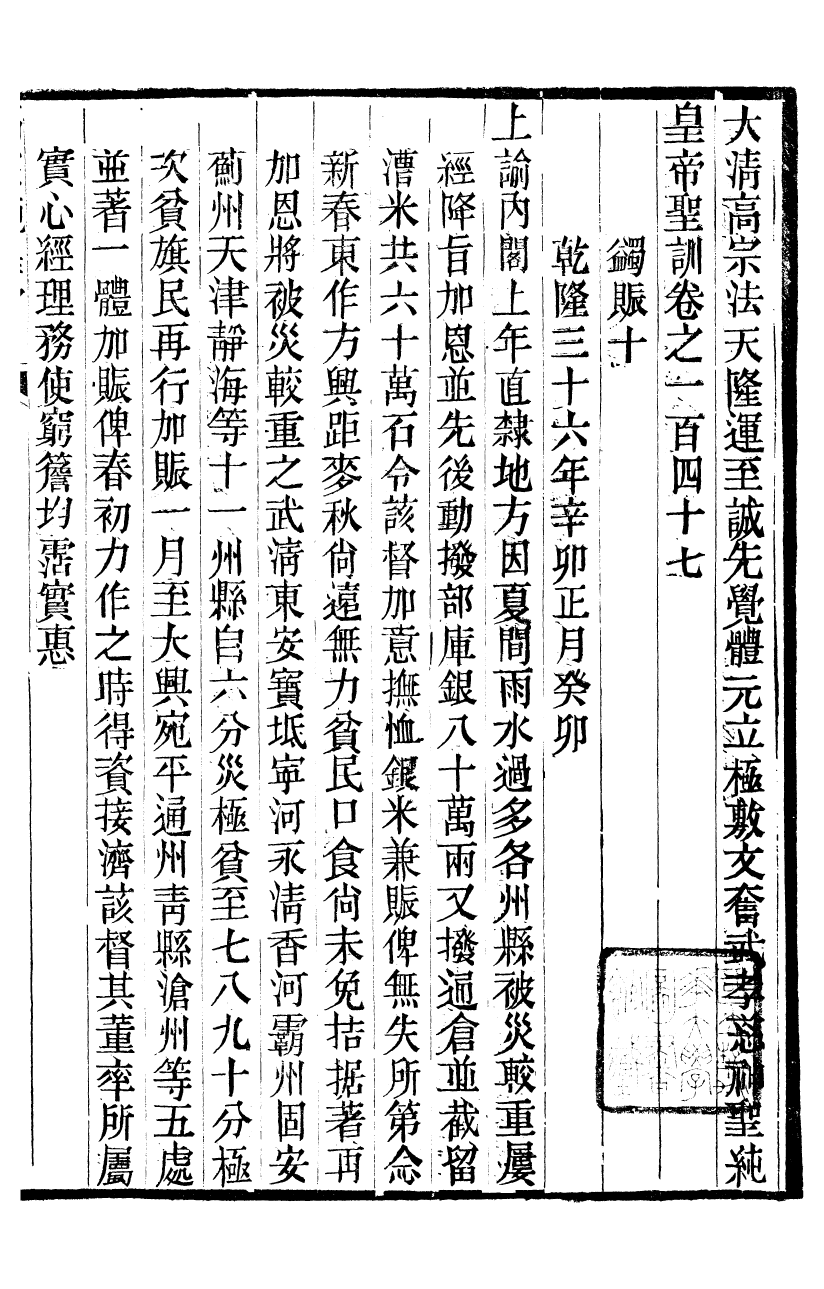 大清高宗法天隆運至誠先覺體元立極敷文奮武孝慈神聖純
皇帝聖訓卷之一百四十七
蠲賑十
乾隆三十六年辛卯正月癸卯
上諭內閣上年直隸地方因夏間雨水過多各州縣被災較重屢
經降旨加恩並先後動撥部庫銀八十萬兩又撥通倉並截留
漕米共六十萬石令該督加意撫恤銀米兼賑俾無失所第念
新春東作方興距麥秋尙遠無力貧民口食尙未免拮据著再
加恩將被災較重之武淸東安寶坻寧河永淸香河霸州固安
薊州天津靜海等十一州縣自六分災極貧至七八九十分極
次貧旗民再行加賑一月至大興宛平通州靑縣滄州等五處
並著一體加賑俾春初力作之時得資接濟該督其董率所屬
實心經理務使窮簷均霑實惠